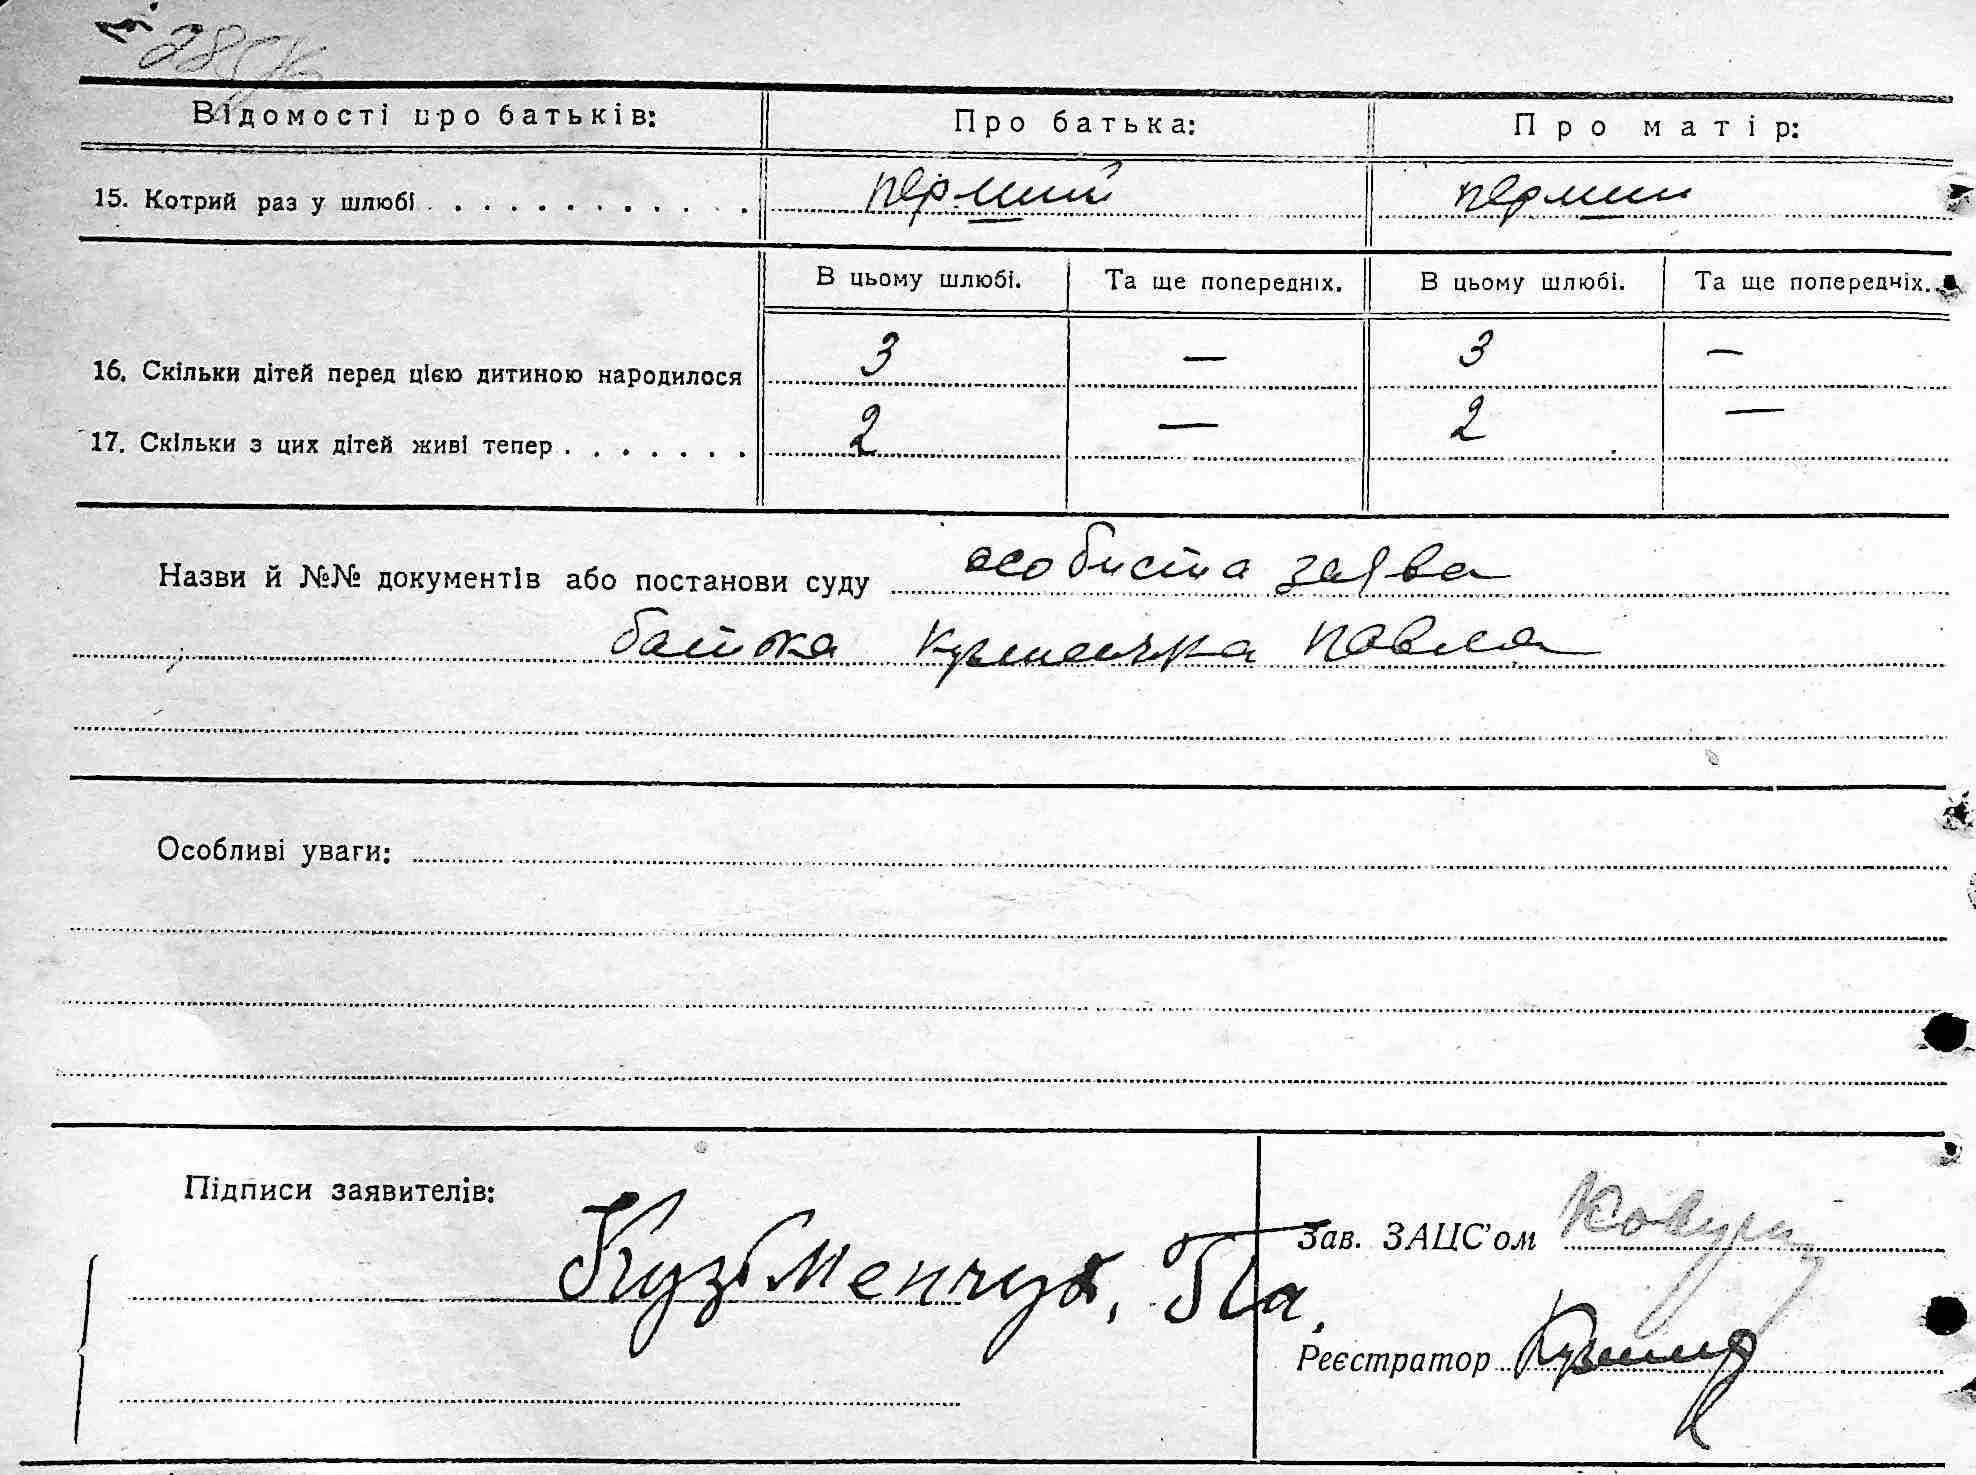 Відомості про батьків: Про батька: Про матір:
15. Котрий раз у шлюбі . . . . . . . . . . . . перший перший
В цьому шлюбі. Та ще попередніх. В цьому шлюбі. Та ще попередніх.
16. Скільки дітей перед цією дитиною народилося 3 — 3 —
17. Скільки з цих дітей живі тепер . . . . . . . 2 — 2 —
Назви й №№ документів або постанови суду особиста заява
батька Кузменчука Павла
Особливі уваги:
Підписи заявителів:
Зав. ЗАЦС'ом
Кузьменчук, Па.
Реєстратор